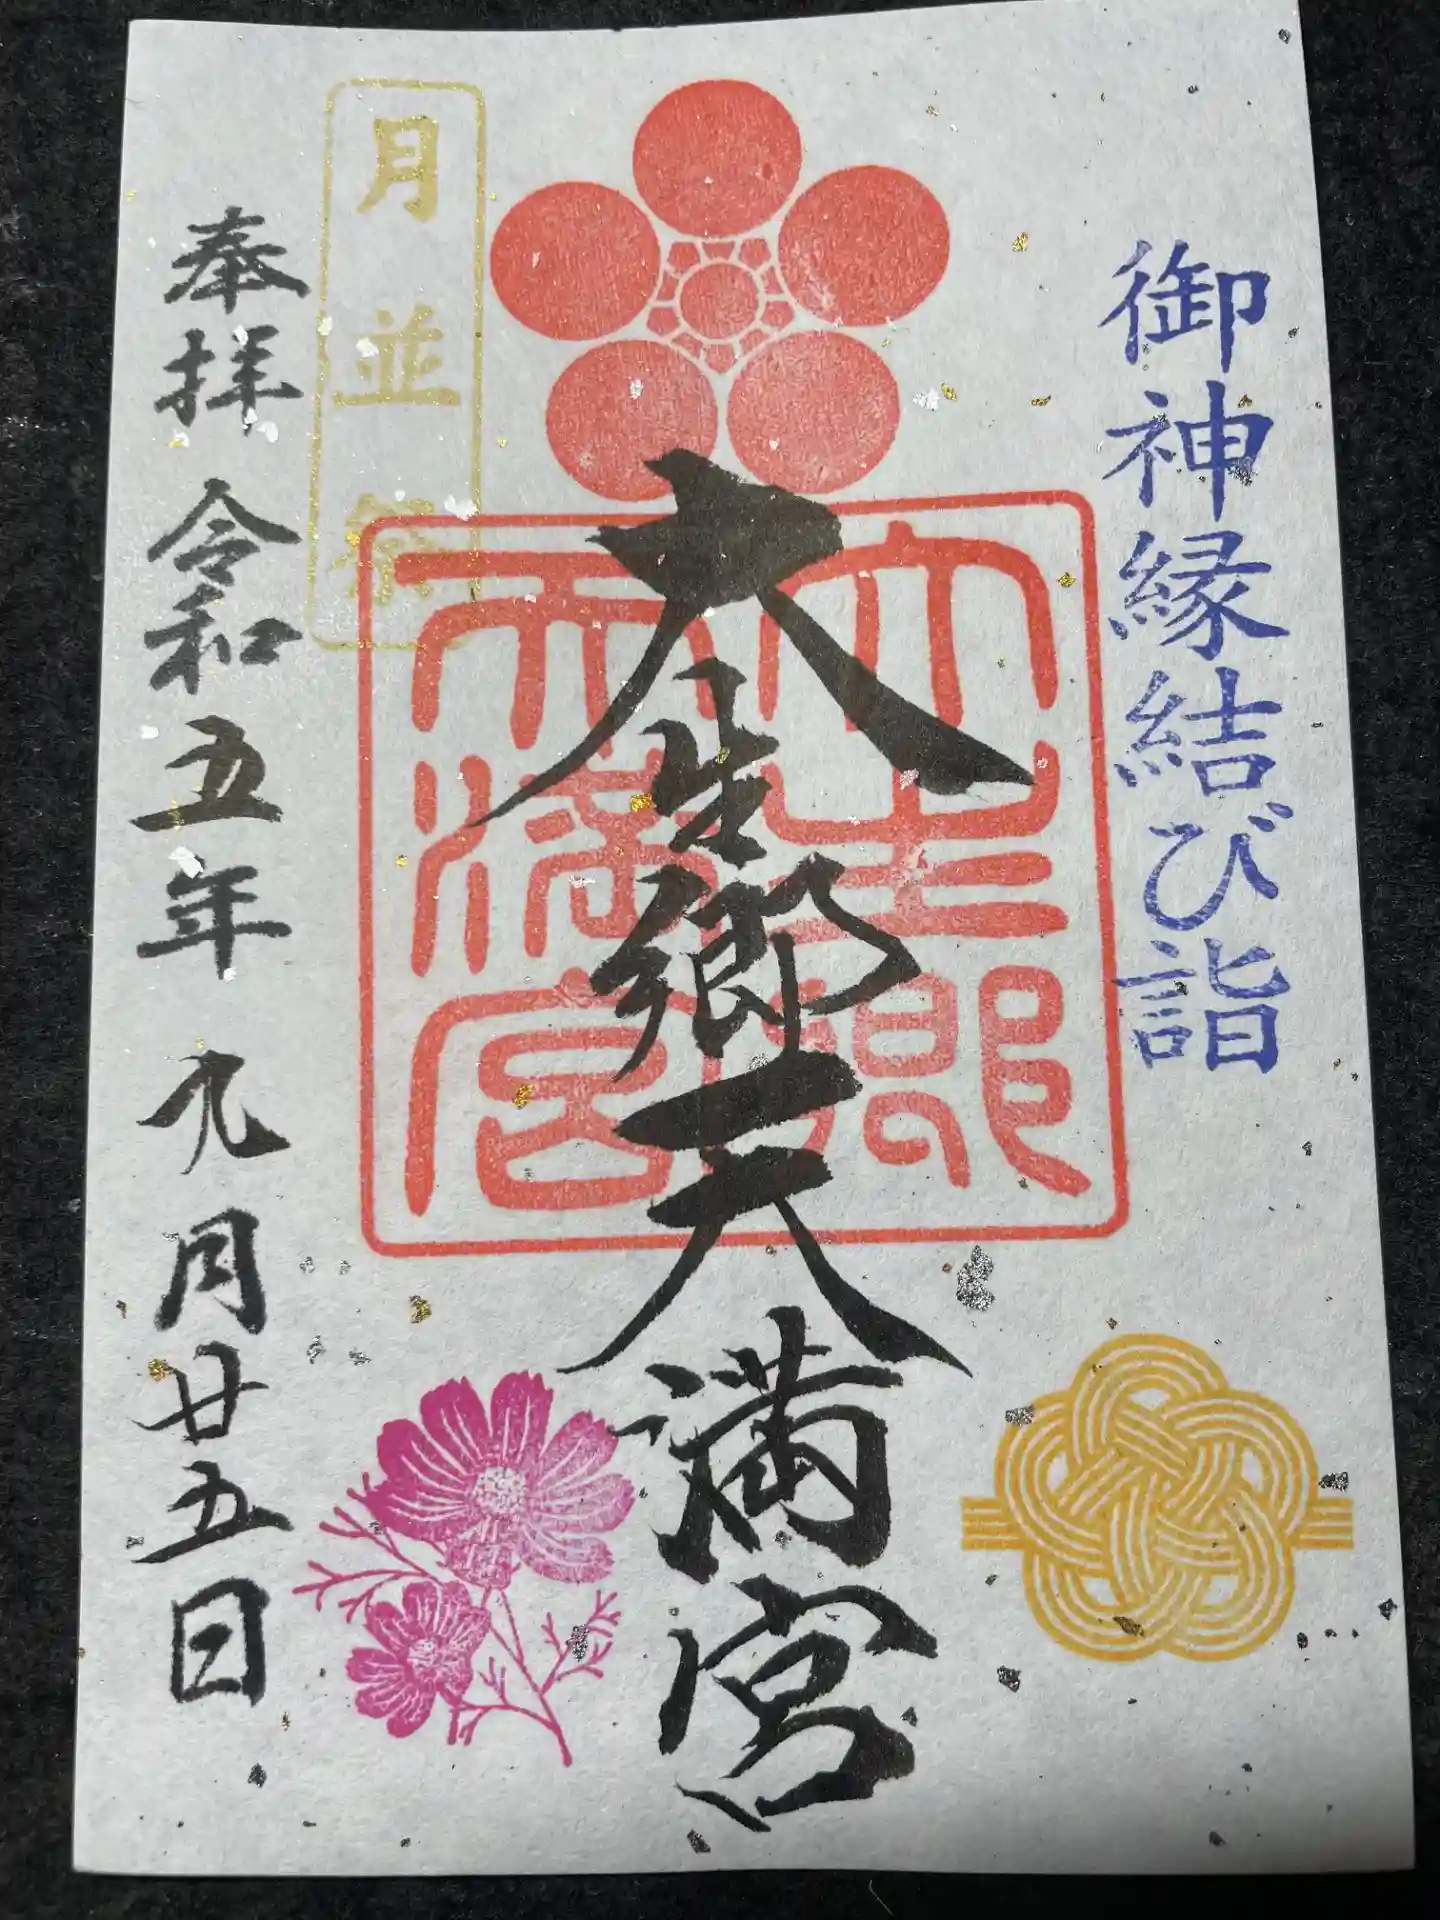 御神縁結び詣
大生郷天満宮
大生郷
天満宮
月並祭
奉拝 令和五年九月廿五日